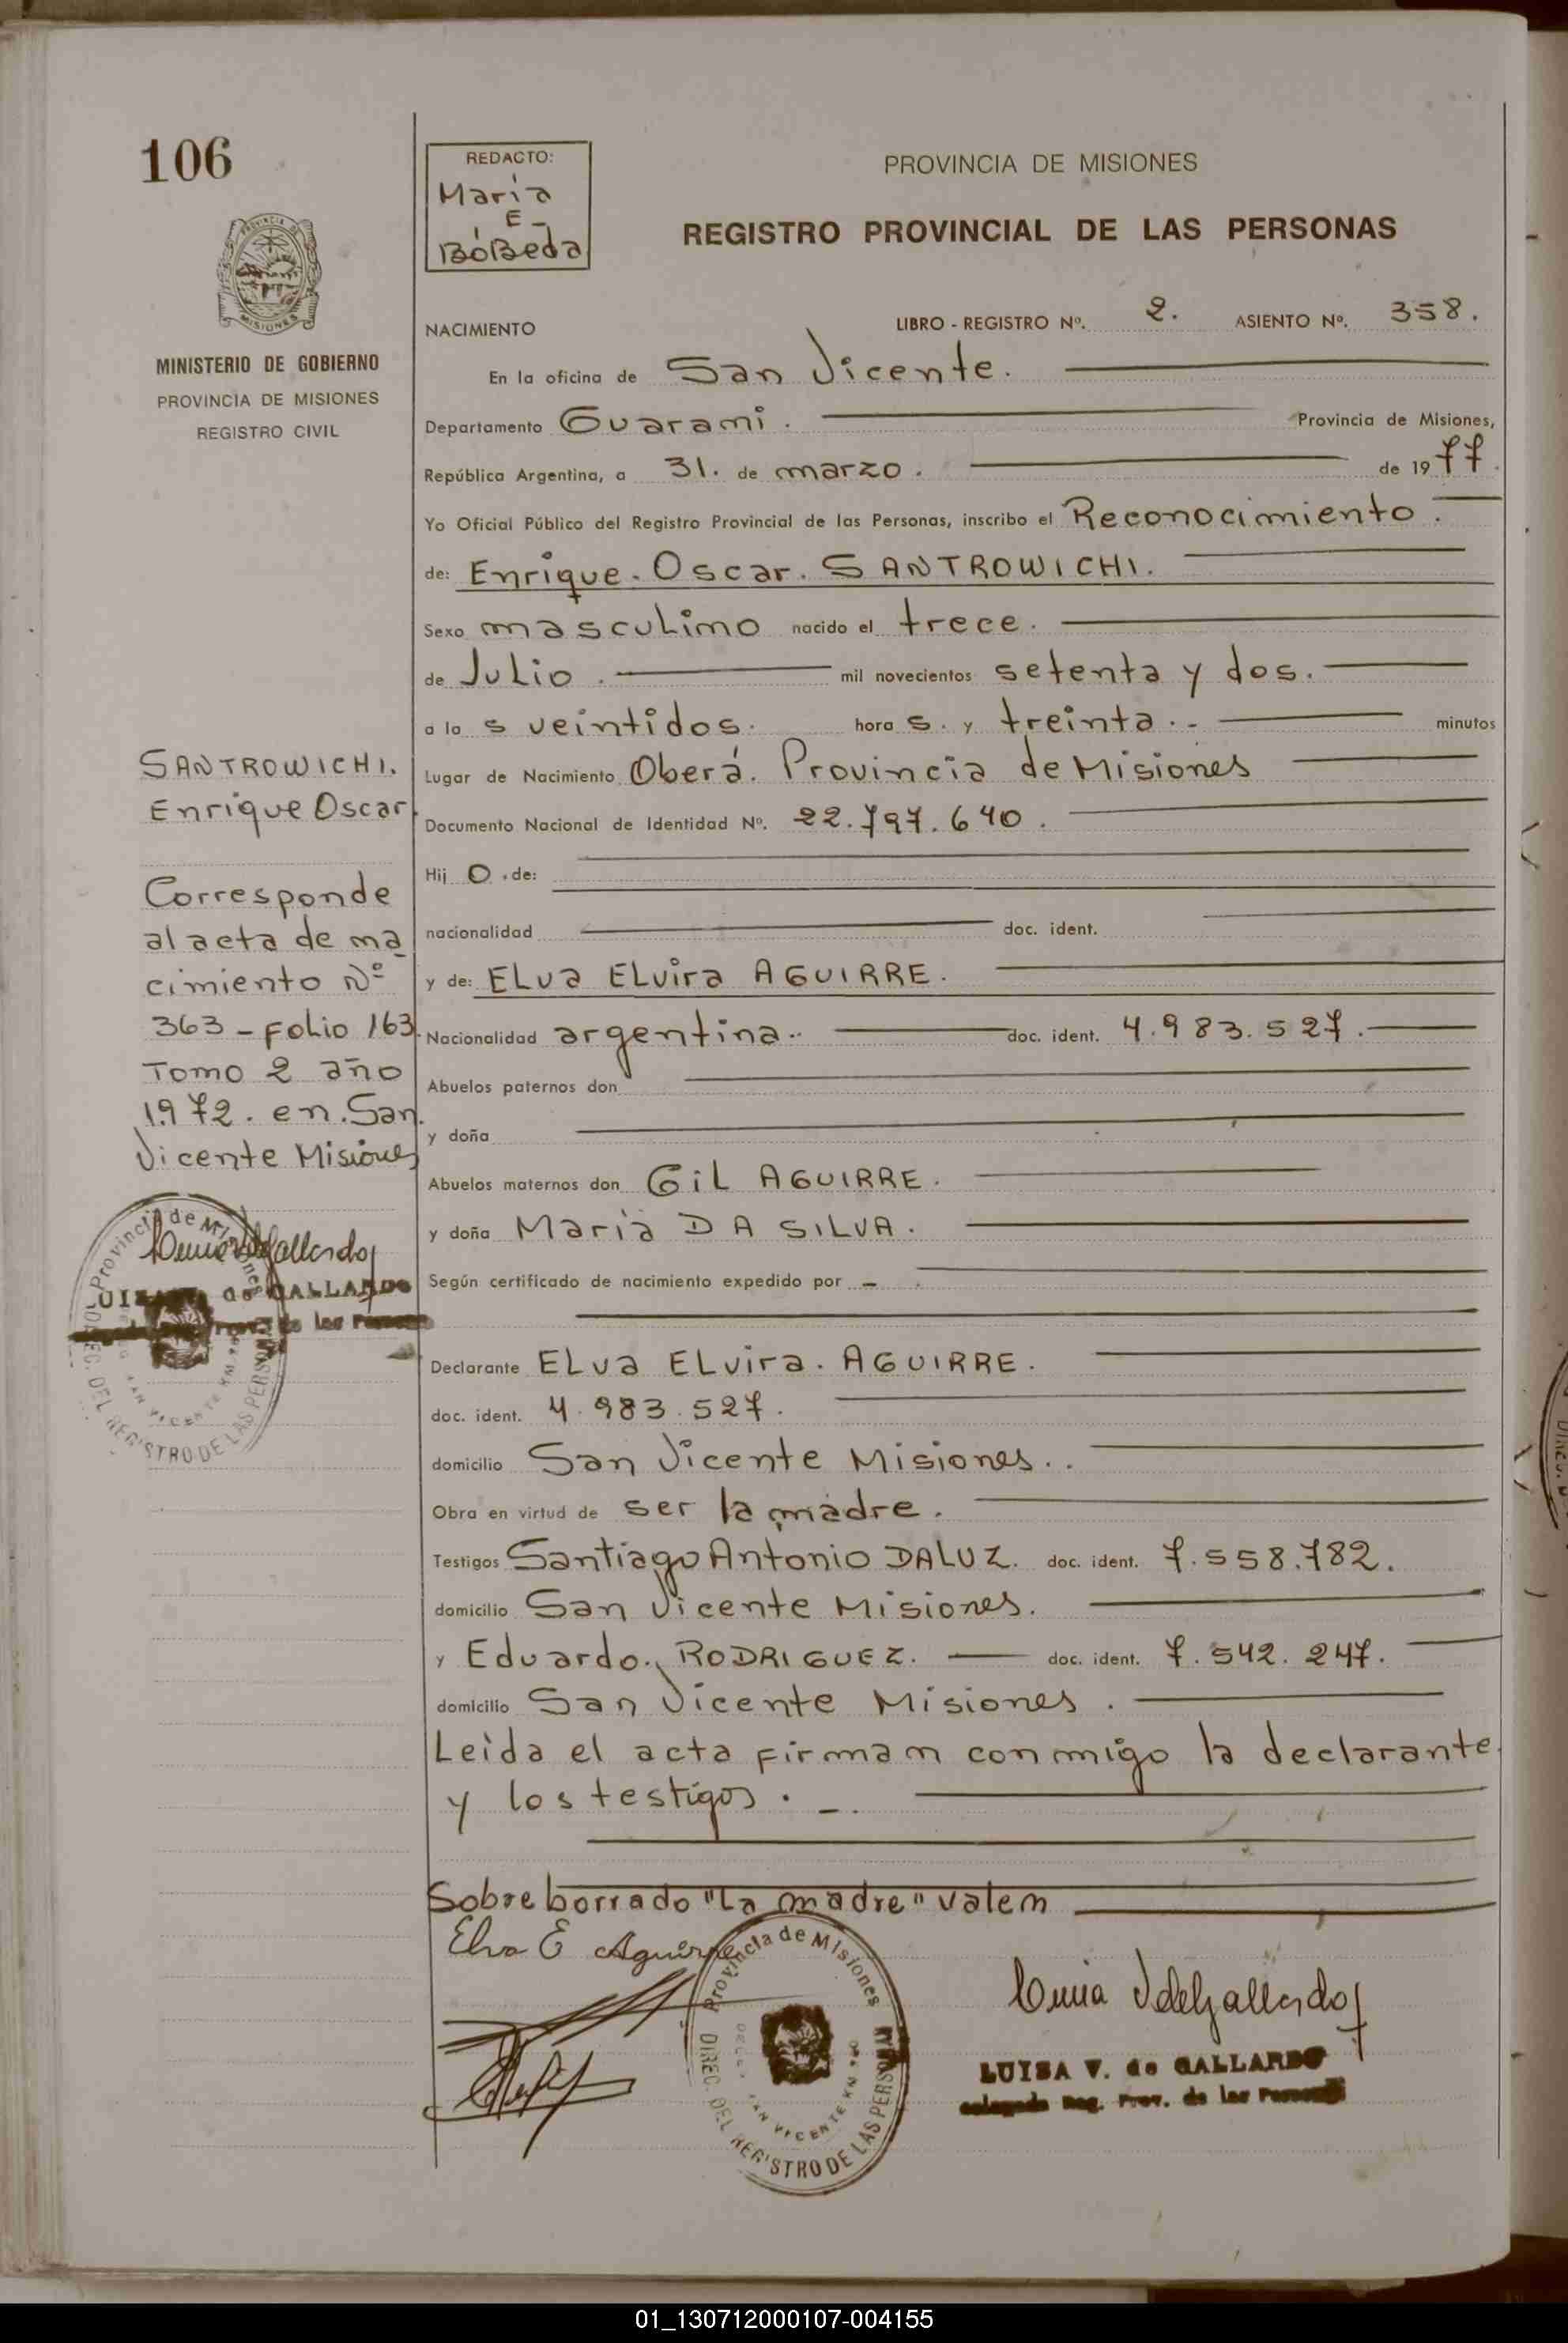 106
REDACTO:
Maria
E-
BóBeda
PROVINCIA DE MISIONES
REGISTRO PROVINCIAL DE LAS PERSONAS
MISIONES
MINISTERIO DE GOBIERNO
PROVINCIA DE MISIONES
REGISTRO CIVIL
NACIMIENTO
LIBRO - REGISTRO Nº. 2. ASIENTO Nº. 358.
En la oficina de San Vicente.
Departamento Guarami. Provincia de Misiones,
República Argentina, a 31. de marzo. de 1977.
Yo Oficial Público del Registro Provincial de las Personas, inscribo el Reconocimiento.
de: Enrique. Oscar. SANTROWICHI.
Sexo masculimo nacido el trece.
de Julio. mil novecientos setenta y dos.
a la s veintidos. hora s. y treinta.- minutos
Lugar de Nacimiento Oberá. Provincia de Misiones
Documento Nacional de Identidad Nº. 22.797.640.
Hij o .de:
nacionalidad doc. ident.
y de: ELva ELvira AGUIRRE.
Nacionalidad argentina.. doc. ident. 4.983.527.
Abuelos paternos don
y doña
Abuelos maternos don GiL AGUIRRE.
y doña Maria DA SILVA.
Según certificado de nacimiento expedido por -
Declarante ELva ELvira. AGUIRRE.
doc. ident. 4.983.527.
domicilio San Vicente Misiones..
Obra en virtud de ser la madre.
Testigos Santiago Antonio DALUZ. doc. ident. 7.558.782.
domicilio San Vicente Misiones.
y Eduardo. RODRIGUEZ. doc. ident. 7.542.247.
domicilio San Vicente Misiones.
Leida el acta firmam conmigo la declarante.
y los testigos. -.
Sobre borrado "La madre" valem
Elva E Aguirre
Provincia de Misiones
DIREC. DEL REGISTRO DE LAS PERSONAS
SAN VICENTE
LUISA V. de GALLARDO
Reg. Prov. de las
SANTROWICHI.
Enrique Oscar.
Corresponde
al acta de ma
cimiento Nº
363-folio 163.
Tomo 2 año
1.972. en. San.
Vicente Misiones
Provincia de Misiones
de GALLARDO
Prov. de las
DIREC. DEL REGISTRO DE LAS PERSONAS
SAN VICENTE
01_130712000107-004155